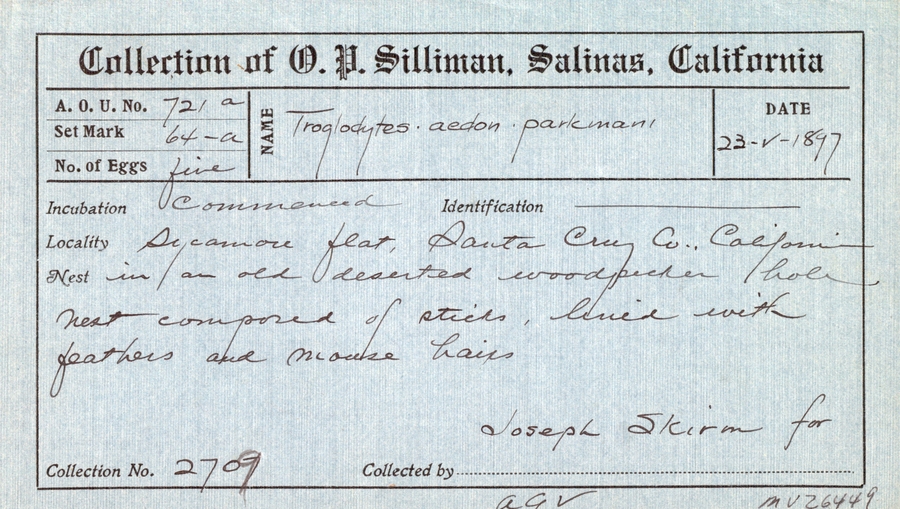 Collection of O. P. Silliman, Salinas, California
A. O. U. No. 721 a
Set Mark 64-a
No. of Eggs five
NAME Troglodytes · aedon · parkmani
DATE
23-V-1897
Incubation Commenced Identification
Locality Sycamore flat, Santa Cruz Co., California
Nest in an old deserted woodpecker hole
nest composed of sticks, lined with
feathers and mouse hairs
Joseph Skirm for
Collection No. 2709 Collected by
AGV
MV26449